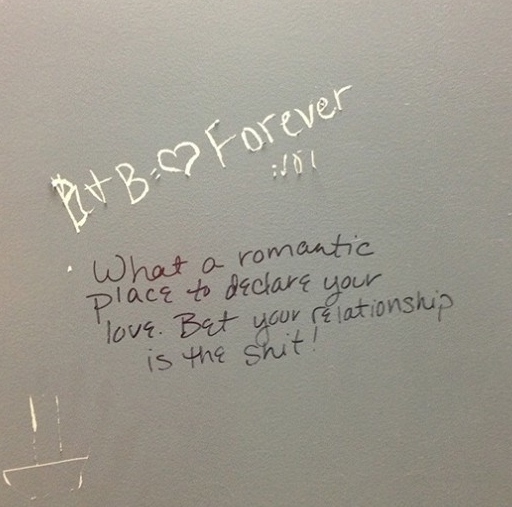 B = ♡ Forever
What a romantic
place to declare your
love. Bet your relationship
is the shit!